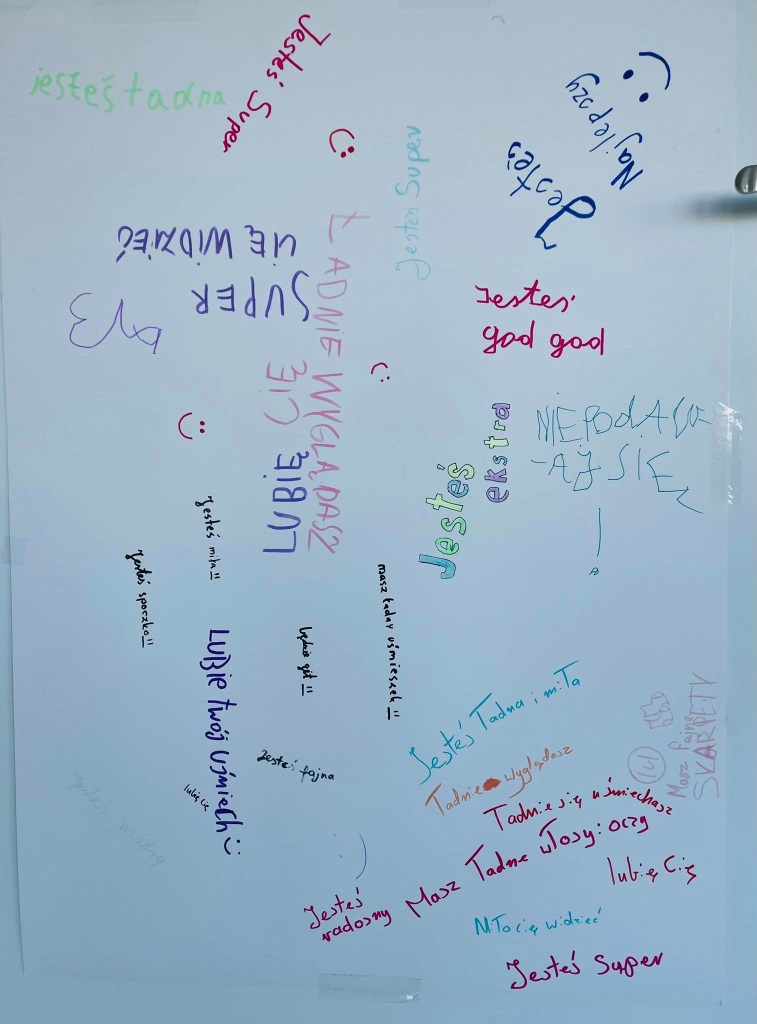 jesteś ładna
Jesteś Super
Jesteś
Najlepszy
Jesteś Super
SUPER
CIĘ WIDZIEĆ
ŁADNIE WYGLĄDASZ
Jesteś
gad gad
LUBIĘ
CIĘ
Jesteś
ekstra
NIEPODDAWA
-AJ SIĘ
!
Jesteś miła!!
Jesteś spoczko!!
będzie git!!
masz ładny uśmieszek!!
LUBIĘ twój uśmiech
lubię cię
Jesteś fajna
Jesteś mądry
Jesteś Ładna i miła
Ładnie wyglądasz
Masz fajne
SKARPETY
lol
Ładnie się uśmiechasz
Masz Ładne włosy i oczy
lubię Cię
Jesteś
radosny
Miło cię widzieć
Jesteś super